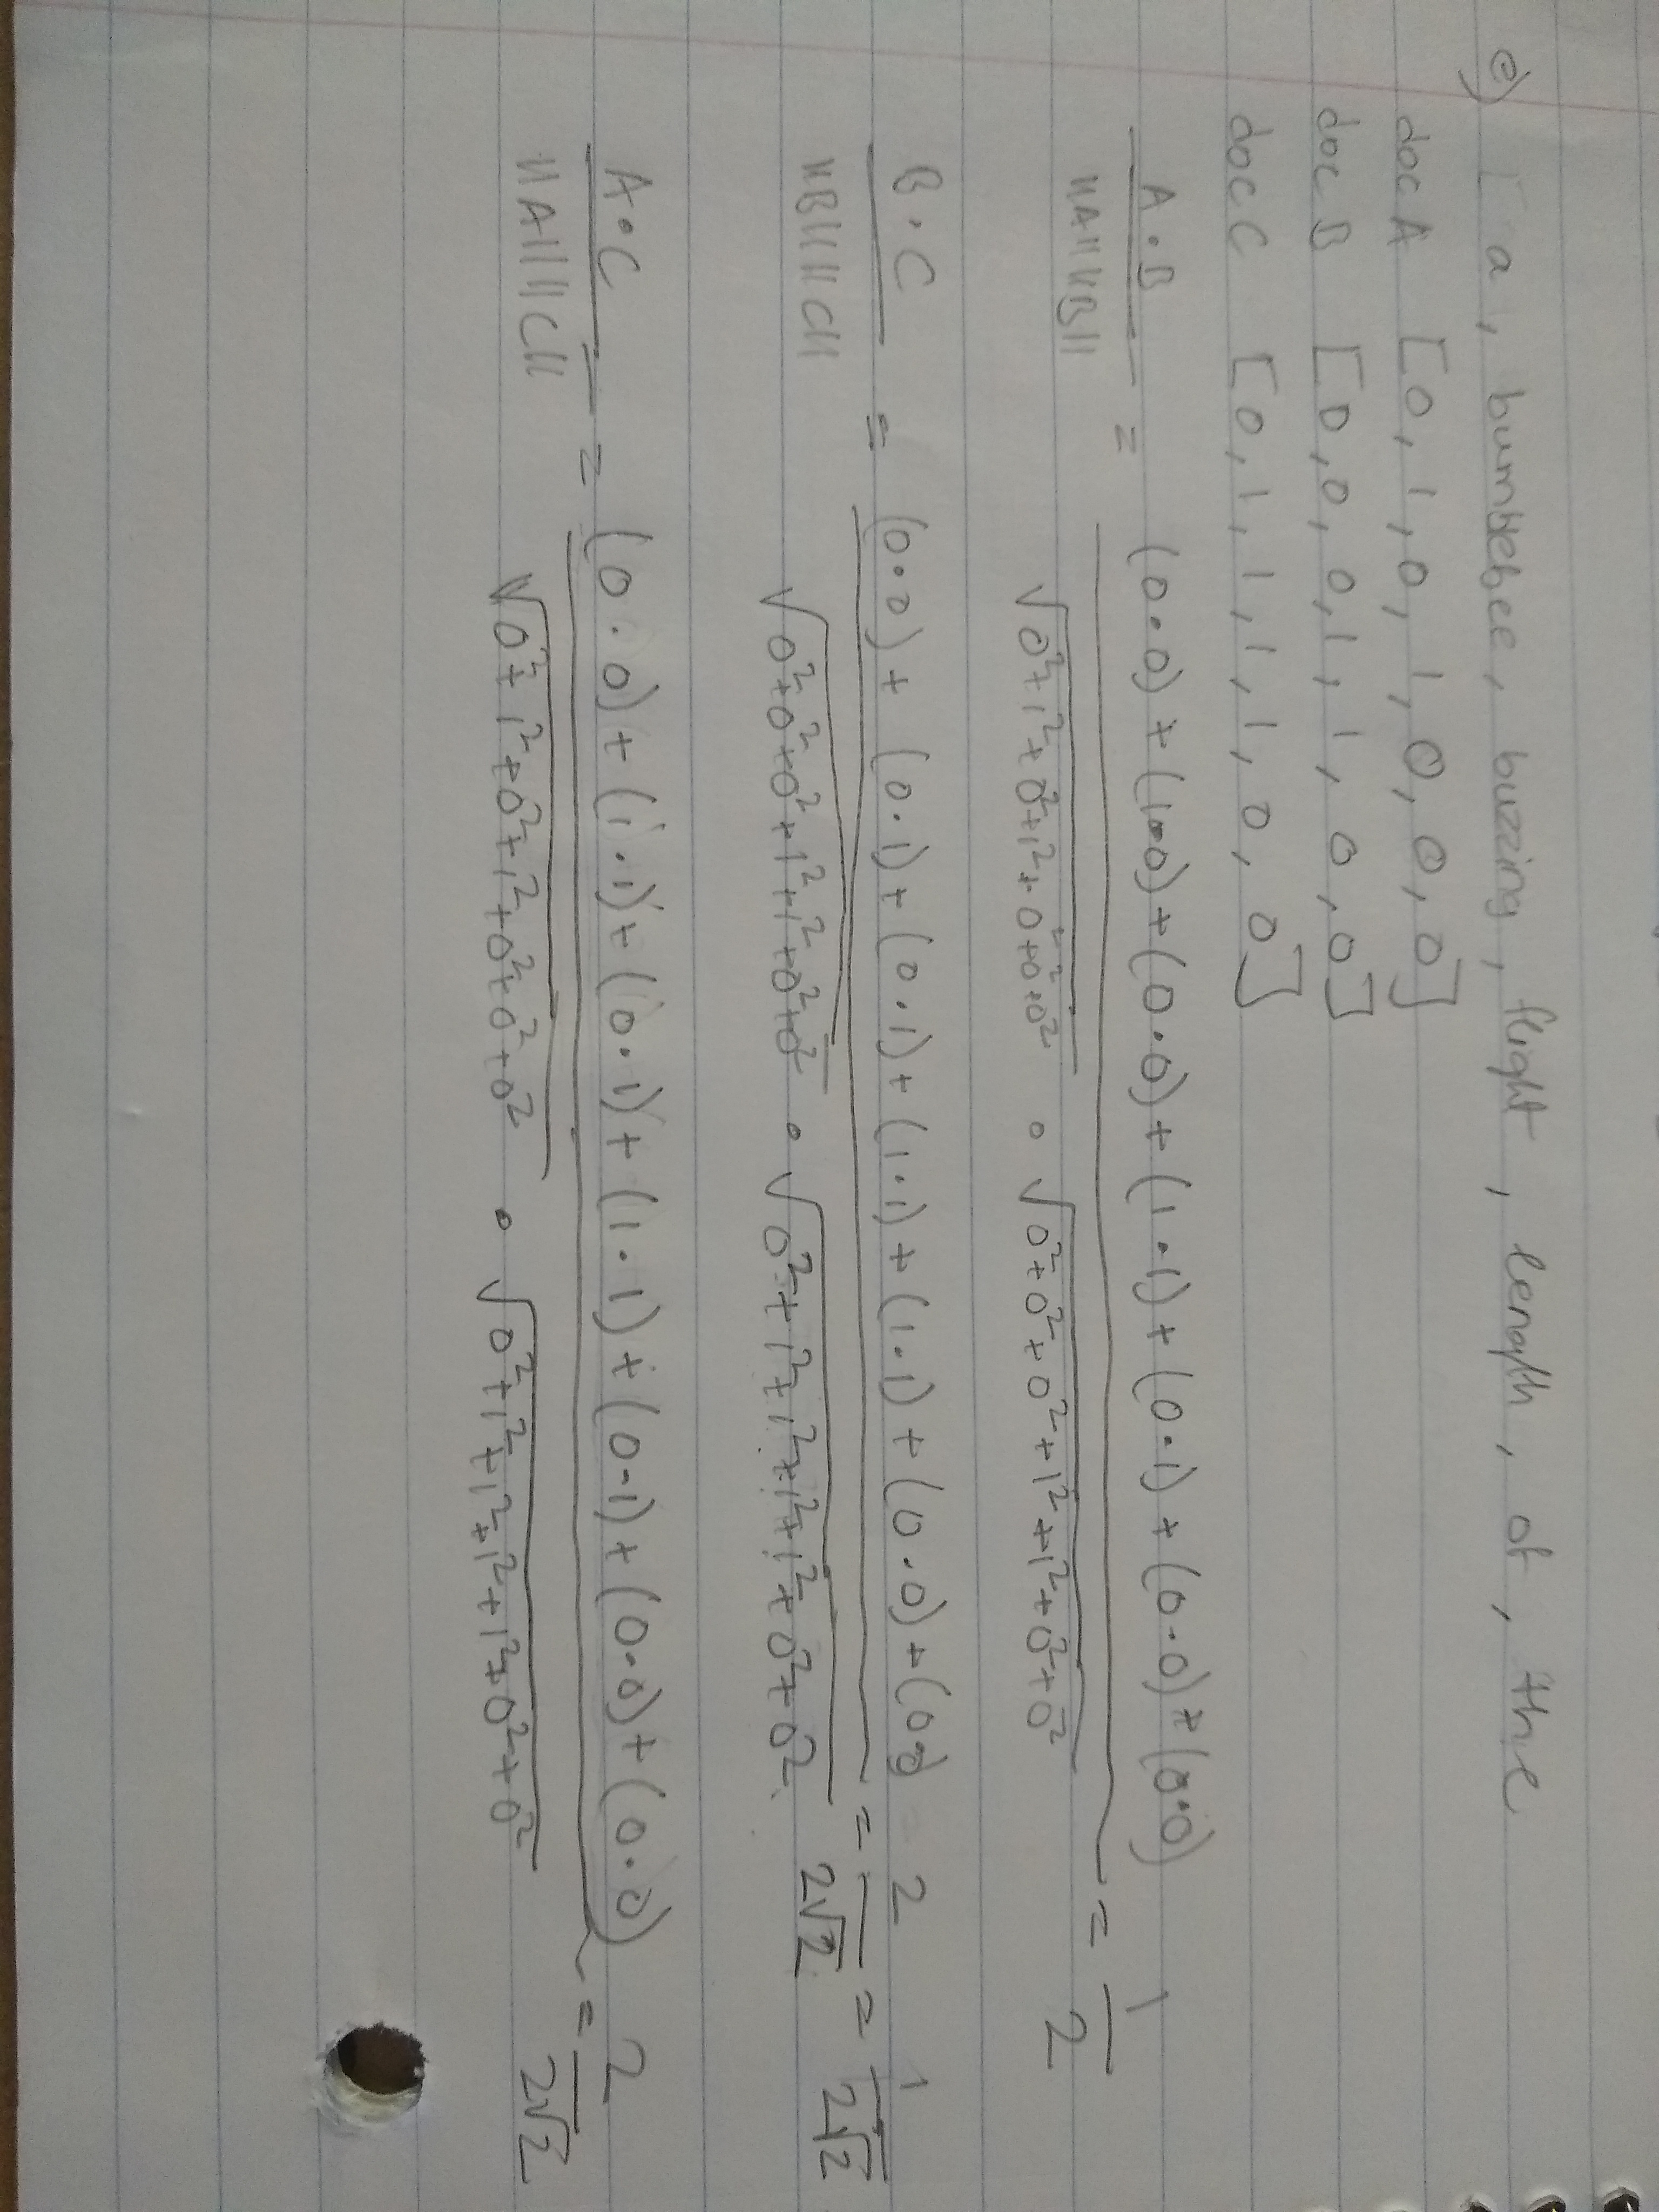 e) [ a, bumblebee, buzzing, flight, length, of, the
doc A [0, 1, 0, 1, 0, 0, 0]
doc B [0, 0, 0, 1, 1, 0, 0]
doc C [0, 1, 1, 1, 1, 0, 0]
A·B = (0·0) + (1·0) + (0·0) + (1·1) + (0·1) + (0·0) + (0·0) = 1
||A|| ||B|| √0²+1²+0²+1²+0²+0²+0² · √0²+0²+0²+1²+1²+0²+0² 2
B·C = (0·0) + (0·1) + (0·1) + (1·1) + (1·1) + (0·0) + (0·0) = 2 = 1
||B|| ||C|| √0²+0²+0²+1²+1²+0²+0² · √0²+1²+1²+1²+1²+0²+0² 2√2 2√2
A·C = = (0·0) + (1·1) + (0·1) + (1·1) + (0·1) + (0·0) + (0·0) = 2
||A|| ||C|| √0²+1²+0²+1²+0²+0²+0² · √0²+1²+1²+1²+1²+0²+0² 2√2